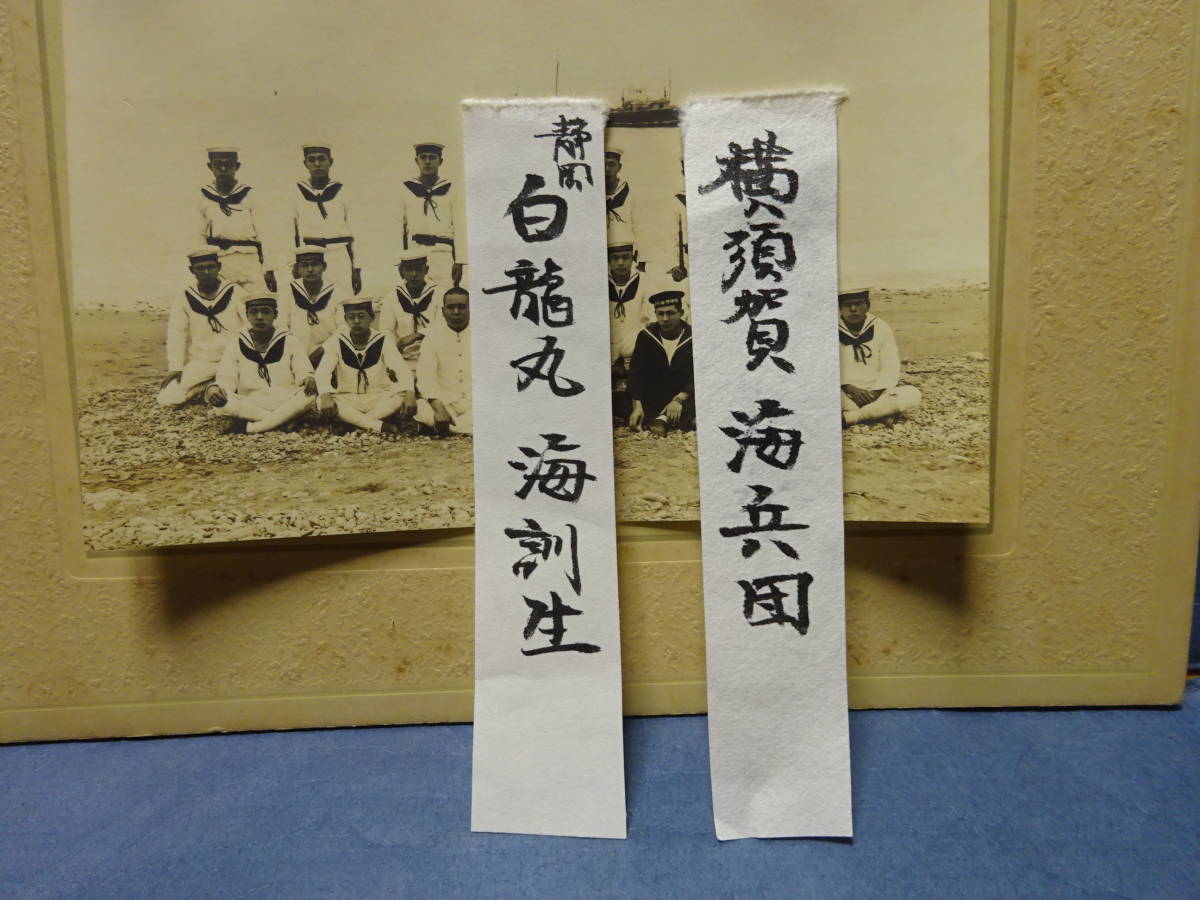 横須賀 海兵団
静岡
白龍丸 海訓生